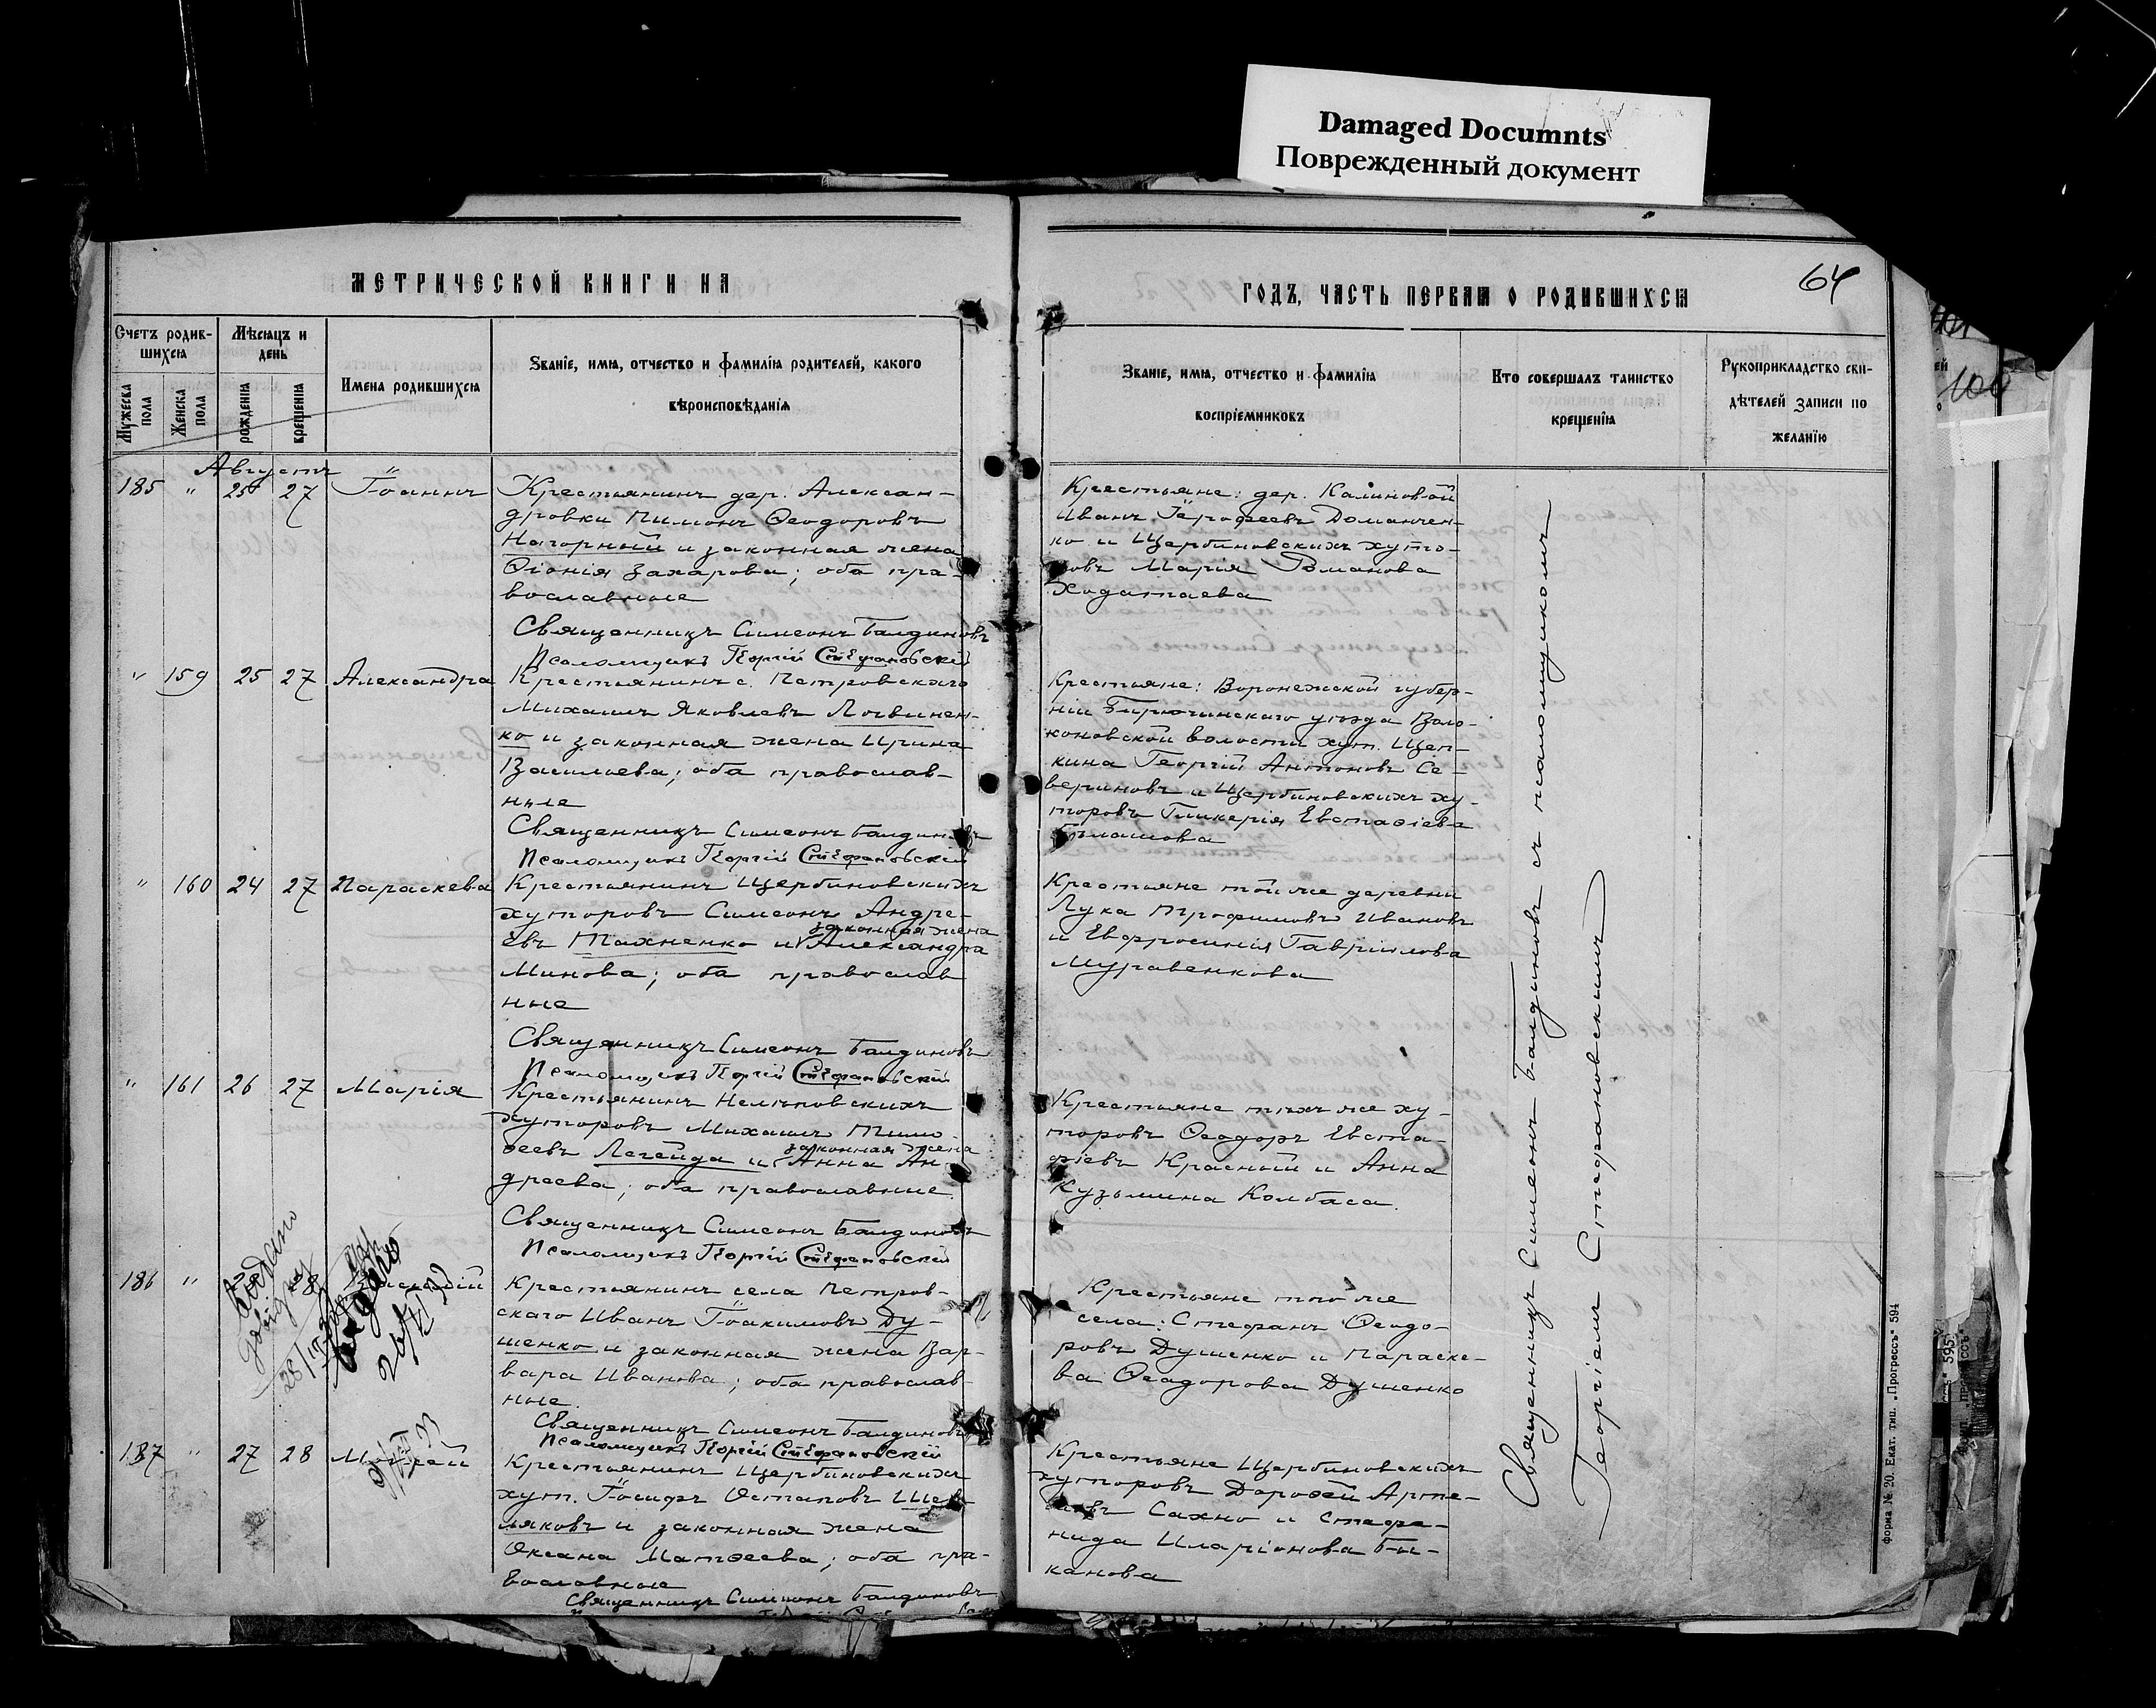 Damaged Documnts
Поврежденный документ
МЕТРИЧЕСКОЙ КНИГИ НА
ГОДЪ, ЧАСТЬ ПЕРВАЯ О РОДИВШИХСЯ
64
Счетъ родив-
шихся
Мужеска пола
Женска пола
Мѣсяцъ и
день
рожденія
крещенія
Имена родившихся
Званіе, имя, отчество и фамилія родителей, какого
вѣроисповѣданія
Званіе, имя, отчество и фамилія
воспріемниковъ
Кто совершалъ таинство
крещенія
Рукоприкладство сви-
дѣтелей записи по
желанію
100
Августъ
185 " 25 27 Іоаннъ
Крестьянинъ дер. Алексан-
дровки Пимонъ Ѳеодоровъ
Нагорный и законная жена
Ѳіонія Захарова; оба пра-
вославные
Священникъ Симеонъ Балдиновъ
Псаломщикъ Георгій Стефановскій
Крестьяне: дер. Калиновой
Иванъ Іероѳеевъ Доманчен-
ко и Щербиновскихъ хуто-
ровъ Марія Романова
Ходатаева
" 159 25 27 Александра
Крестьянинъ с. Петровскаго
Михаилъ Яковлевъ Логвинен-
ко и законная жена Ирина
Васильева; оба православ-
ные
Священникъ Симеонъ Балдиновъ
Псаломщикъ Георгій Стефановскій
Крестьяне: Воронежской губер-
ніи Бирючинскаго уѣзда Воло-
коновской волости хут. Щеп-
кина Георгій Антоновъ Се-
вериновъ и Щербиновскихъ ху-
торовъ Гликерія Евстаѳіева
" 160 24 27 Параскева
Крестьянинъ Щербиновскихъ
хуторовъ Симеонъ Андре-
евъ Махненко и законная жена Александра
Минова; оба православ
ные
Священникъ Симеонъ Балдиновъ
Псаломщикъ Георгій Стефановскій
Крестьяне той же деревни
Лука Трофимовъ Ивановъ
и Евфросинія Гавріилова
Муравенкова
" 161 26 27 Марія
Крестьянинъ Нелѣповскихъ
хуторовъ Михаилъ Тимо-
ѳеевъ Легейда и законная жена Анна Ан-
дреева; оба православные.
Священникъ Симеонъ Балдиновъ
Псаломщикъ Георгій Стефановскій
Крестьяне тѣхъ же ху-
торовъ Ѳеодоръ Евста-
фіевъ Красный и Анна
Кузьмина Колбаса.
186 " 28
Крестьянинъ села Петров-
скаго Иванъ Іоакимовъ Ду-
шенко и законная жена Вар-
вара Иванова; оба православ-
ные.
Священникъ Симеонъ Балдиновъ
Псаломщикъ Георгій Стефановскій
Крестьяне того же
села: Стефанъ Ѳеодо-
ровъ Душенко и Параске-
ва Ѳеодорова Душенко
187 " 27 28
Крестьянинъ Щербиновскихъ
хут. Іосифъ Остаповъ Шев-
ляковъ и законная жена
Оксана Матѳеева; оба пра-
вославные
Священникъ Симеонъ Балдиновъ
Крестьяне Щербиновскихъ
хуторовъ Дороѳей Арте-
мовъ Сахно и Стефа-
нида Иларіонова Бы-
канова
Священникъ Симеонъ Балдиновъ съ псаломщикомъ
Георгіемъ Стефановскимъ
Форма № 20. Екат. тип. „Прогрессъ" 594